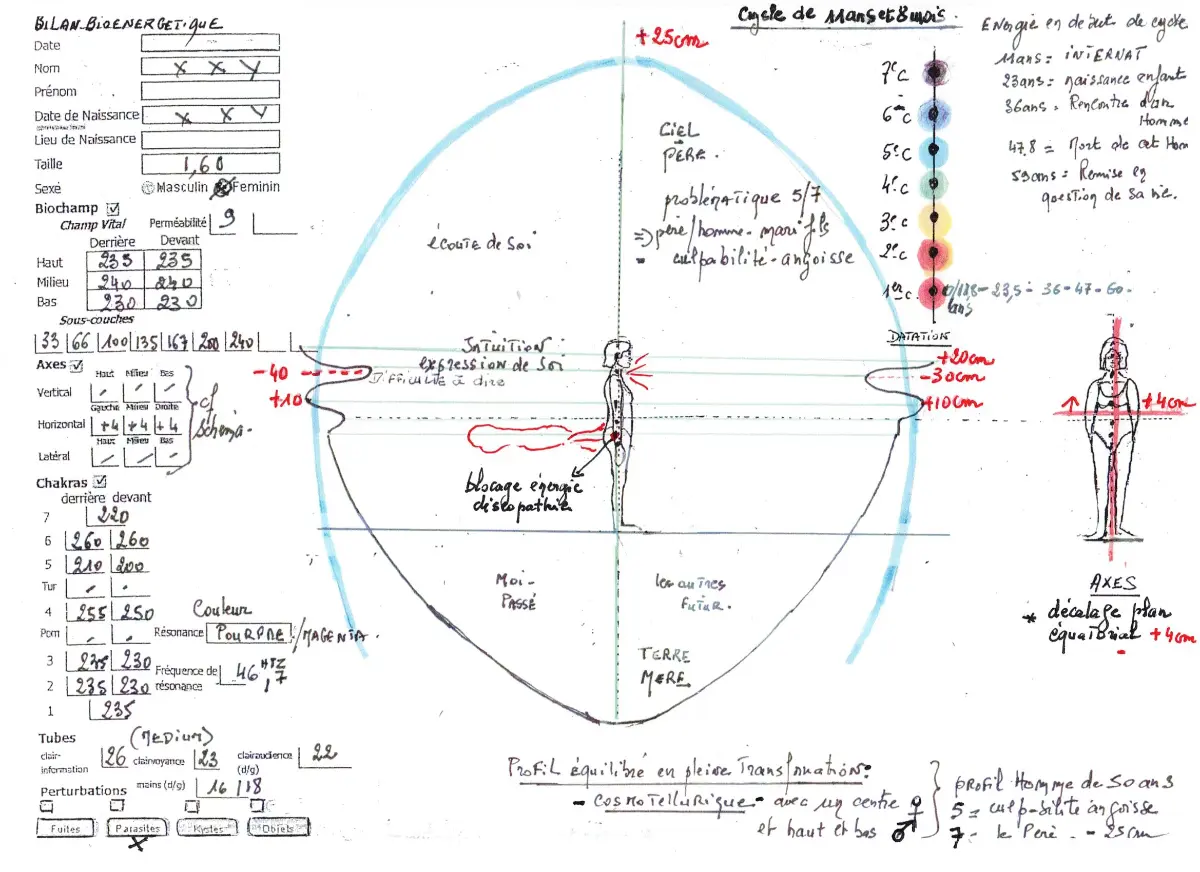 BILAN BIOENERGETIQUE
Date
Nom X X Y
Prénom
Date de Naissance X X Y
Lieu de Naissance
Taille 1,60
Sexe Masculin Feminin
Biochamp
Champ Vital Perméabilité 9
Derrière Devant
Haut 235 235
Milieu 240 240
Bas 230 230
Sous-couches
33 66 100 135 167 200 240
Axes
Haut Milieu Bas
Vertical / / /
Gauche Milieu Droite
Horizontal +4 +4 +4
Haut Milieu Bas
Latéral / / /
cf schéma.
Chakras
derrière devant
7 220
6 260 260
5 210 200
Tur
4 255 250
Pom
3 235 230
2 235 230
1 235
Couleur
Résonance POURPRE / MAGENTA.
Fréquence de résonance 46 HTZ 1,7
Tubes (MEDIUM)
clair-information 26 clairvoyance 23 clairaudience (d/g) 22
Perturbations mains (d/g) 16 / 18
Fuites Parasites Kystes Objets
X
Cycle de 11 ans et 8 mois.
+25cm
CIEL
PÈRE.
problématique 5/7
=> père/homme-mari fils
- culpabilité-angoisse
écoute de Soi
INTUITION
expression de Soi
Difficulté à dire
-40
+10
blocage énergie
discopathie
Moi-
PASSÉ
les autres
FUTUR.
TERRE
MERE
7e C
6e C
5e C
4e C
3e C
2e C
1er C
0/11,8 - 23,5 - 36 - 47 - 60 -
ans
DATATION
+20cm
-30cm
+10cm
Energie en debut de cycle
11ans = INTERNAT
23ans = naissance enfant
36ans = Rencontre d'un
Homme
47,8 = Mort de cet Hom
59ans = Remise en
question de sa vie.
+4cm
AXES
* décalage plan
équatorial +4cm
Profil équilibré en pleine Transformation:
- COSMOTELLURIQUE - avec un centre ♀
et haut et bas ♂
PROFIL Homme de 50 ans
5 = culpabilité angoisse
7 - le Père - -25cm